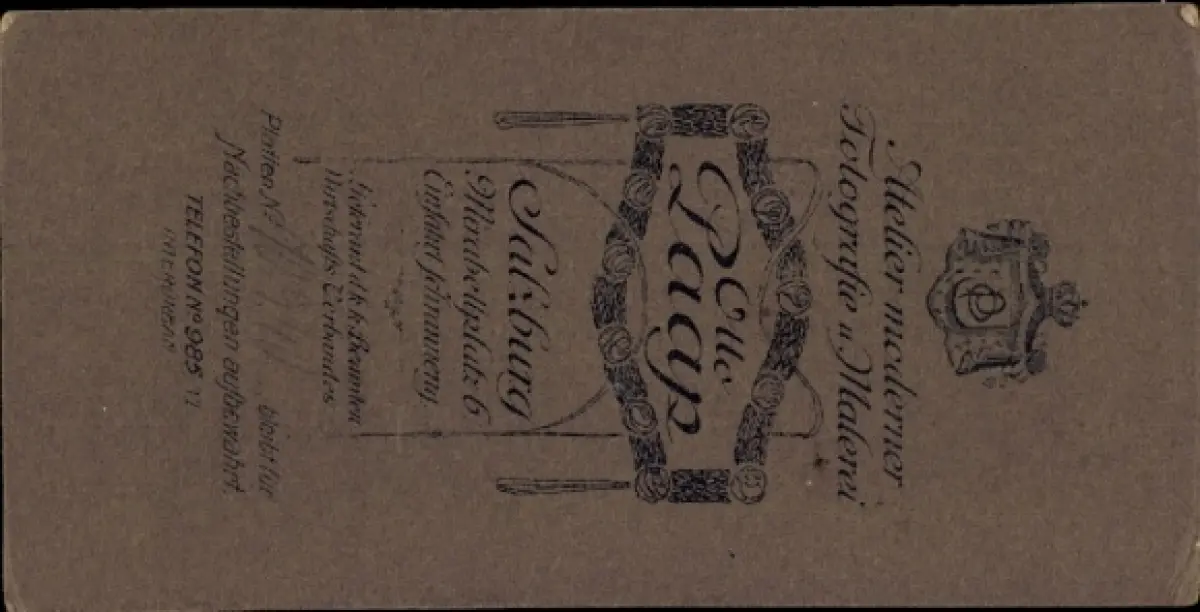 Atelier moderner
Fotografie u Malerei
Otto
Paap
Salzburg
Mirabellplatz 6
Einfahrt
Lieferant d. k. k. Beamten
Wirtschafts-Verbandes
Platten No bleibt für
Nachbestellungen aufbewahrt.
TELEFON No 985 VI
INTERURBAN